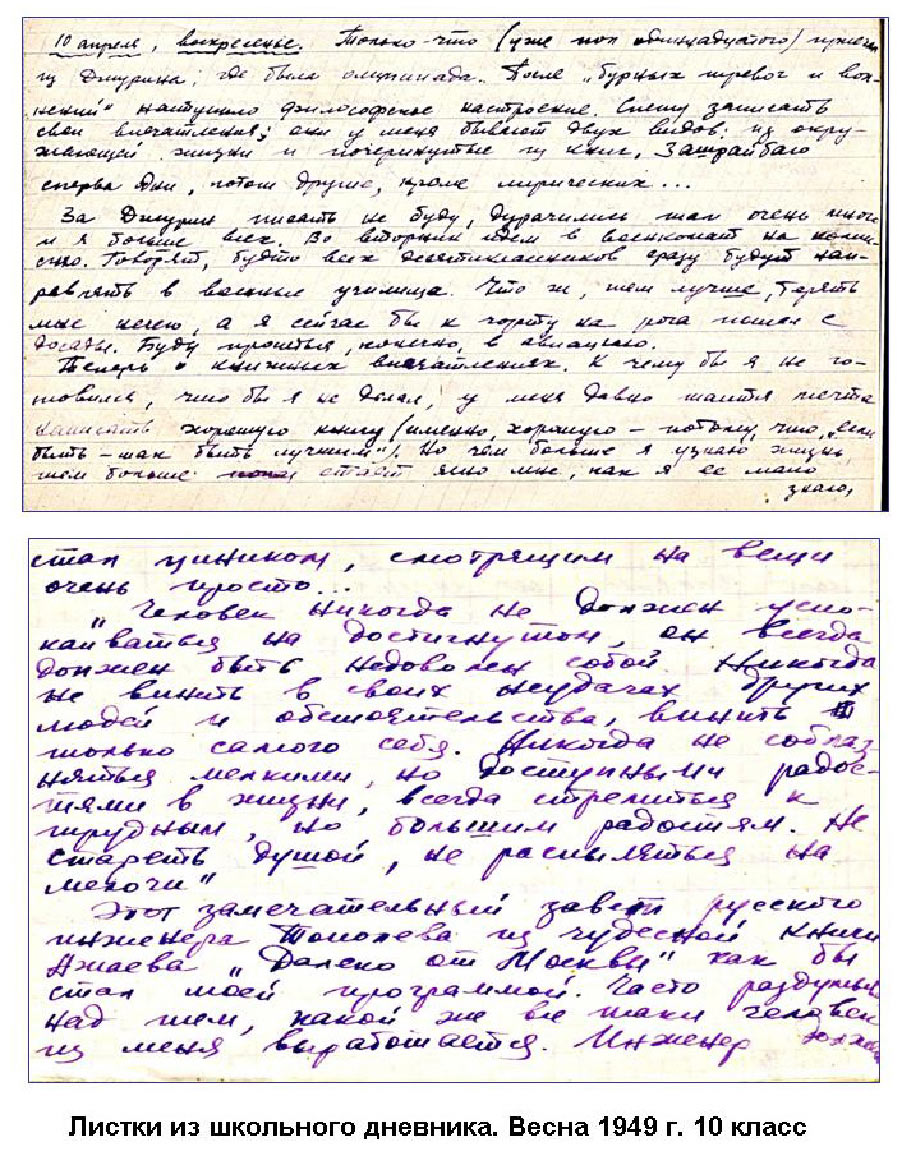 10 апреля, воскресенье. Только что (уже пол одиннадцатого) приехал
из Джурина, где была олимпиада. После „бурных тревог и вол-
нений" наступило философское настроение. Спешу записать
свои впечатления; они у меня бывают двух видов: из окру-
жающей жизни и почерпнутые из книг.
сперва одни, потом другие, кроме лирических...
За Джурин писать не буду, дурачились там очень много
и я больше всех. Во вторник идем в военкомат на комис-
сию. Говорят, будто всех десятиклассников сразу будут нап-
равлять в военные училища. Что ж, тем лучше, терять
мне нечего, а я сейчас бы к чорту на рога пошел с
досады. Буду проситься, конечно, в авиацию.
Теперь о книжных впечатлениях. К чему бы я не го-
товился, что бы я не делал, у меня давно таится мечта
написать хорошую книгу (именно, хорошую – потому, что „если
быть – так быть лучшим"). Но чем больше я узнаю жизнь,
тем больше стает ясно мне, как я ее мало
знаю,
стал циником, смотрящим на вещи
очень просто...
„Человек никогда не должен успо-
каиваться на достигнутом, он всегда
должен быть недоволен собой. Никогда
не винить в своих неудачах других
людей и обстоятельства, винить
только самого себя. Никогда не соблаз-
няться мелкими, но доступными радос-
тями в жизни, всегда стремиться к
трудным, но большим радостям. Не
стареть душой, не распыляться на
мелочи"
Этот замечательный завет русского
инженера Тополева из чудесной книги
Ажаева „Далеко от Москвы" как бы
стал моей программой. Часто раздумываю
над тем, какой же все таки человек
из меня выработается. Инженер должен
Листки из школьного дневника. Весна 1949 г. 10 класс